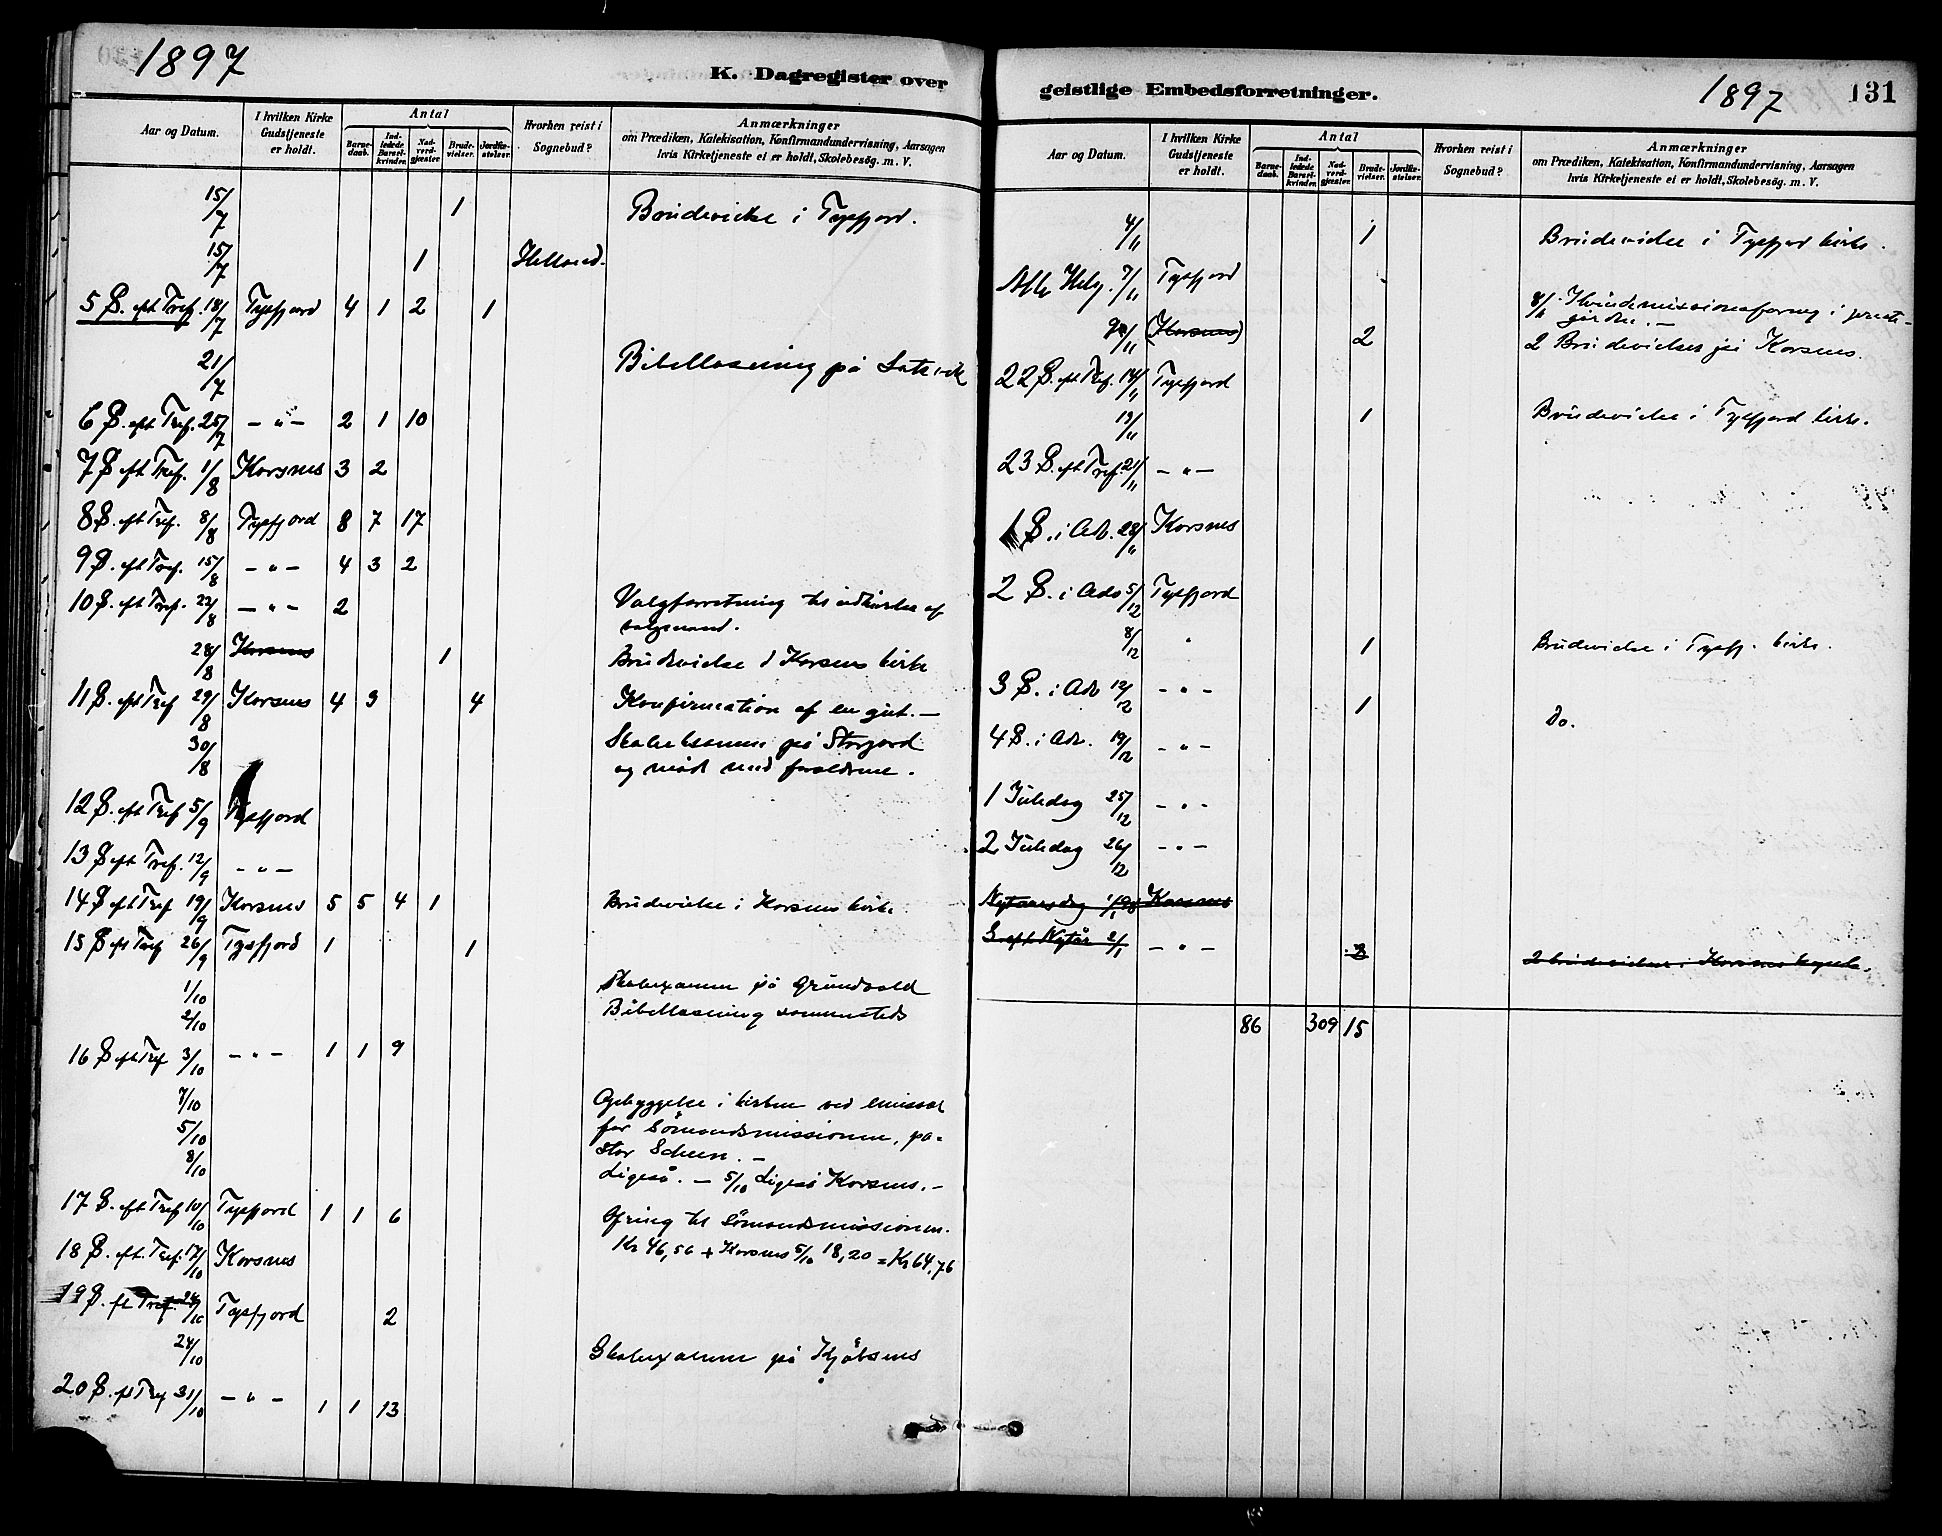 1897
K. Dagregister over
Aar og Datum.
I hvilken Kirke Gudstjeneste er holdt.
Antal
Barnedaab.
Indledede Barselkvinder.
Nadverdgjester.
Brudevielser.
Jordfæstelser.
Hvorhen reist i Sognebud?
Anmærkninger
om Prædiken, Katekisation, Konfirmandundervisning, Aarsagen
hvis Kirketjeneste ei er holdt, Skolebesøg. m. V.
15/7 1 Brudevielse i Tysfjord.
15/7 1 Helland.
5 S. eft Tref. 18/7 Tysfjord 4 1 2 1
21/7 Bibellæsning på
6 S. eft Tref. 25/7 - " - 2 1 10
7 S eft Tref. 1/8 Korsnes 3 2
8 S. eft Tref. 8/8 Tysfjord 8 7 17
9 S. eft Tref. 15/8 - " - 4 3 2
10 S. eft Tref. 22/8 - " - 2 Valgforretning til udkårelse af
valgmænd.
28/8 Korsnes 1 Brudevielse i Korsnes kirke
11 S. eft Tref 29/8 Korsnes 4 3 4 Konfirmation af en gut. -
30/8 Skoleksamen på Storjord
og møde med forældrene.
12 S. eft Tref 5/9 Tysfjord
13 S eft Tref. 12/9 - " -
14 S eft Tref 19/9 Korsnes 5 5 4 1 Brudevielse i Korsnes kirke
15 S eft Tref 26/9 Tysfjord 1 1
1/10 Skolexamen på Grundvold
2/10 Bibellæsning sammesteds
16 S eft Tref 3/10 - " - 1 1 9
7/10 Opbyggelse i kirken ved emissær
5/10 for Sømandsmissionen, pa-
8/10 stor Scheen. -
Ligeså. - 5/10 Ligeså Korsnes. -
17 S. eft Tref 10/10 Tysfjord 1 1 6 Ofring til Sømandsmissionen.
18 S. eft. Tref. 17/10 Korsnes Kr 46,56 + Korsnes 5/10 18,20 = Kr 64,76
19 S. ft Tref. 24/10 Tysfjord 2
24/10 Skolexamen på Kjøbsnes
20 S. ft Tref 31/10 - " - 1 1 13
geistlige Embedsforretninger.
1897
131
Aar og Datum.
I hvilken Kirke Gudstjeneste er holdt.
Antal
Barnedaab.
Indledede Barselkvinder.
Nadverdgjester.
Brudevielser.
Jordfæstelser.
Hvorhen reist i Sognebud?
Anmærkninger
om Prædiken, Katekisation, Konfirmandundervisning, Aarsagen
hvis Kirketjeneste ei er holdt, Skolebesøg. m. V.
4/11 1 Brudevielse i Tysfjord kirke.
Alle Helg. 7/11 Tysfjord
8/11 Kvindemissionsforening i præste-
gården. -
9/11 (Korsnes) 2 2 Brudevielser på Korsnes.
22 S. eft Tref. 14/11 Tysfjord
13/11 1 Brudevielse i Tysfjord kirke.
23 S. eft Tref. 21/11 - " -
1 S. i Adv. 28/11 Korsnes
2 S. i Adv 5/12 Tysfjord
8/12 " 1 Brudevielse i Tysfj. kirke.
3 S. i Adv 12/12 - " - 1 Do.
4 S. i Adv. 19/12 - " -
1 Juledag 25/12 - " -
2 Juledag 26/12 - " -
Nytaarsdag 1/1 98 Korsnes
S. eft. Nytår 2/1 - " - 2 2 brudevielser i Korsnes
86 309 15